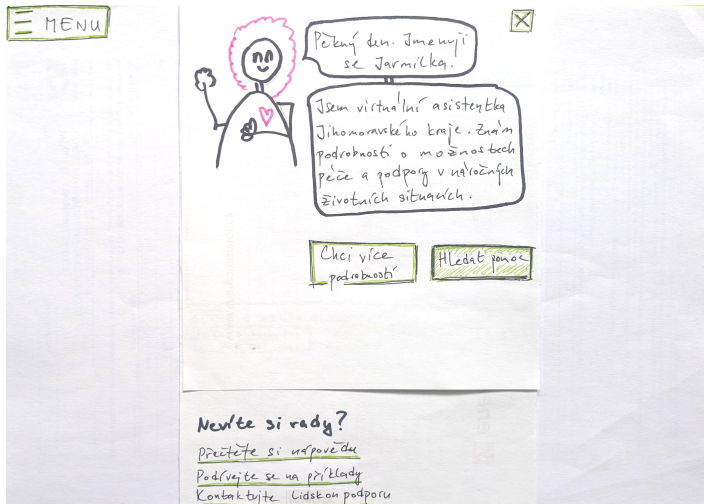 MENU
Pěkný den. Jmenuji
se Jarmilka.
Jsem virtuální asistentka
Jihomoravského kraje. Znám
podrobnosti o možnostech
péče a podpory v náročných
životních situacích.
Chci více
podrobností
Hledat pomoc
Nevíte si rady?
Přečtěte si nápovědu
Podívejte se na příklady
Kontaktujte lidskou podporu